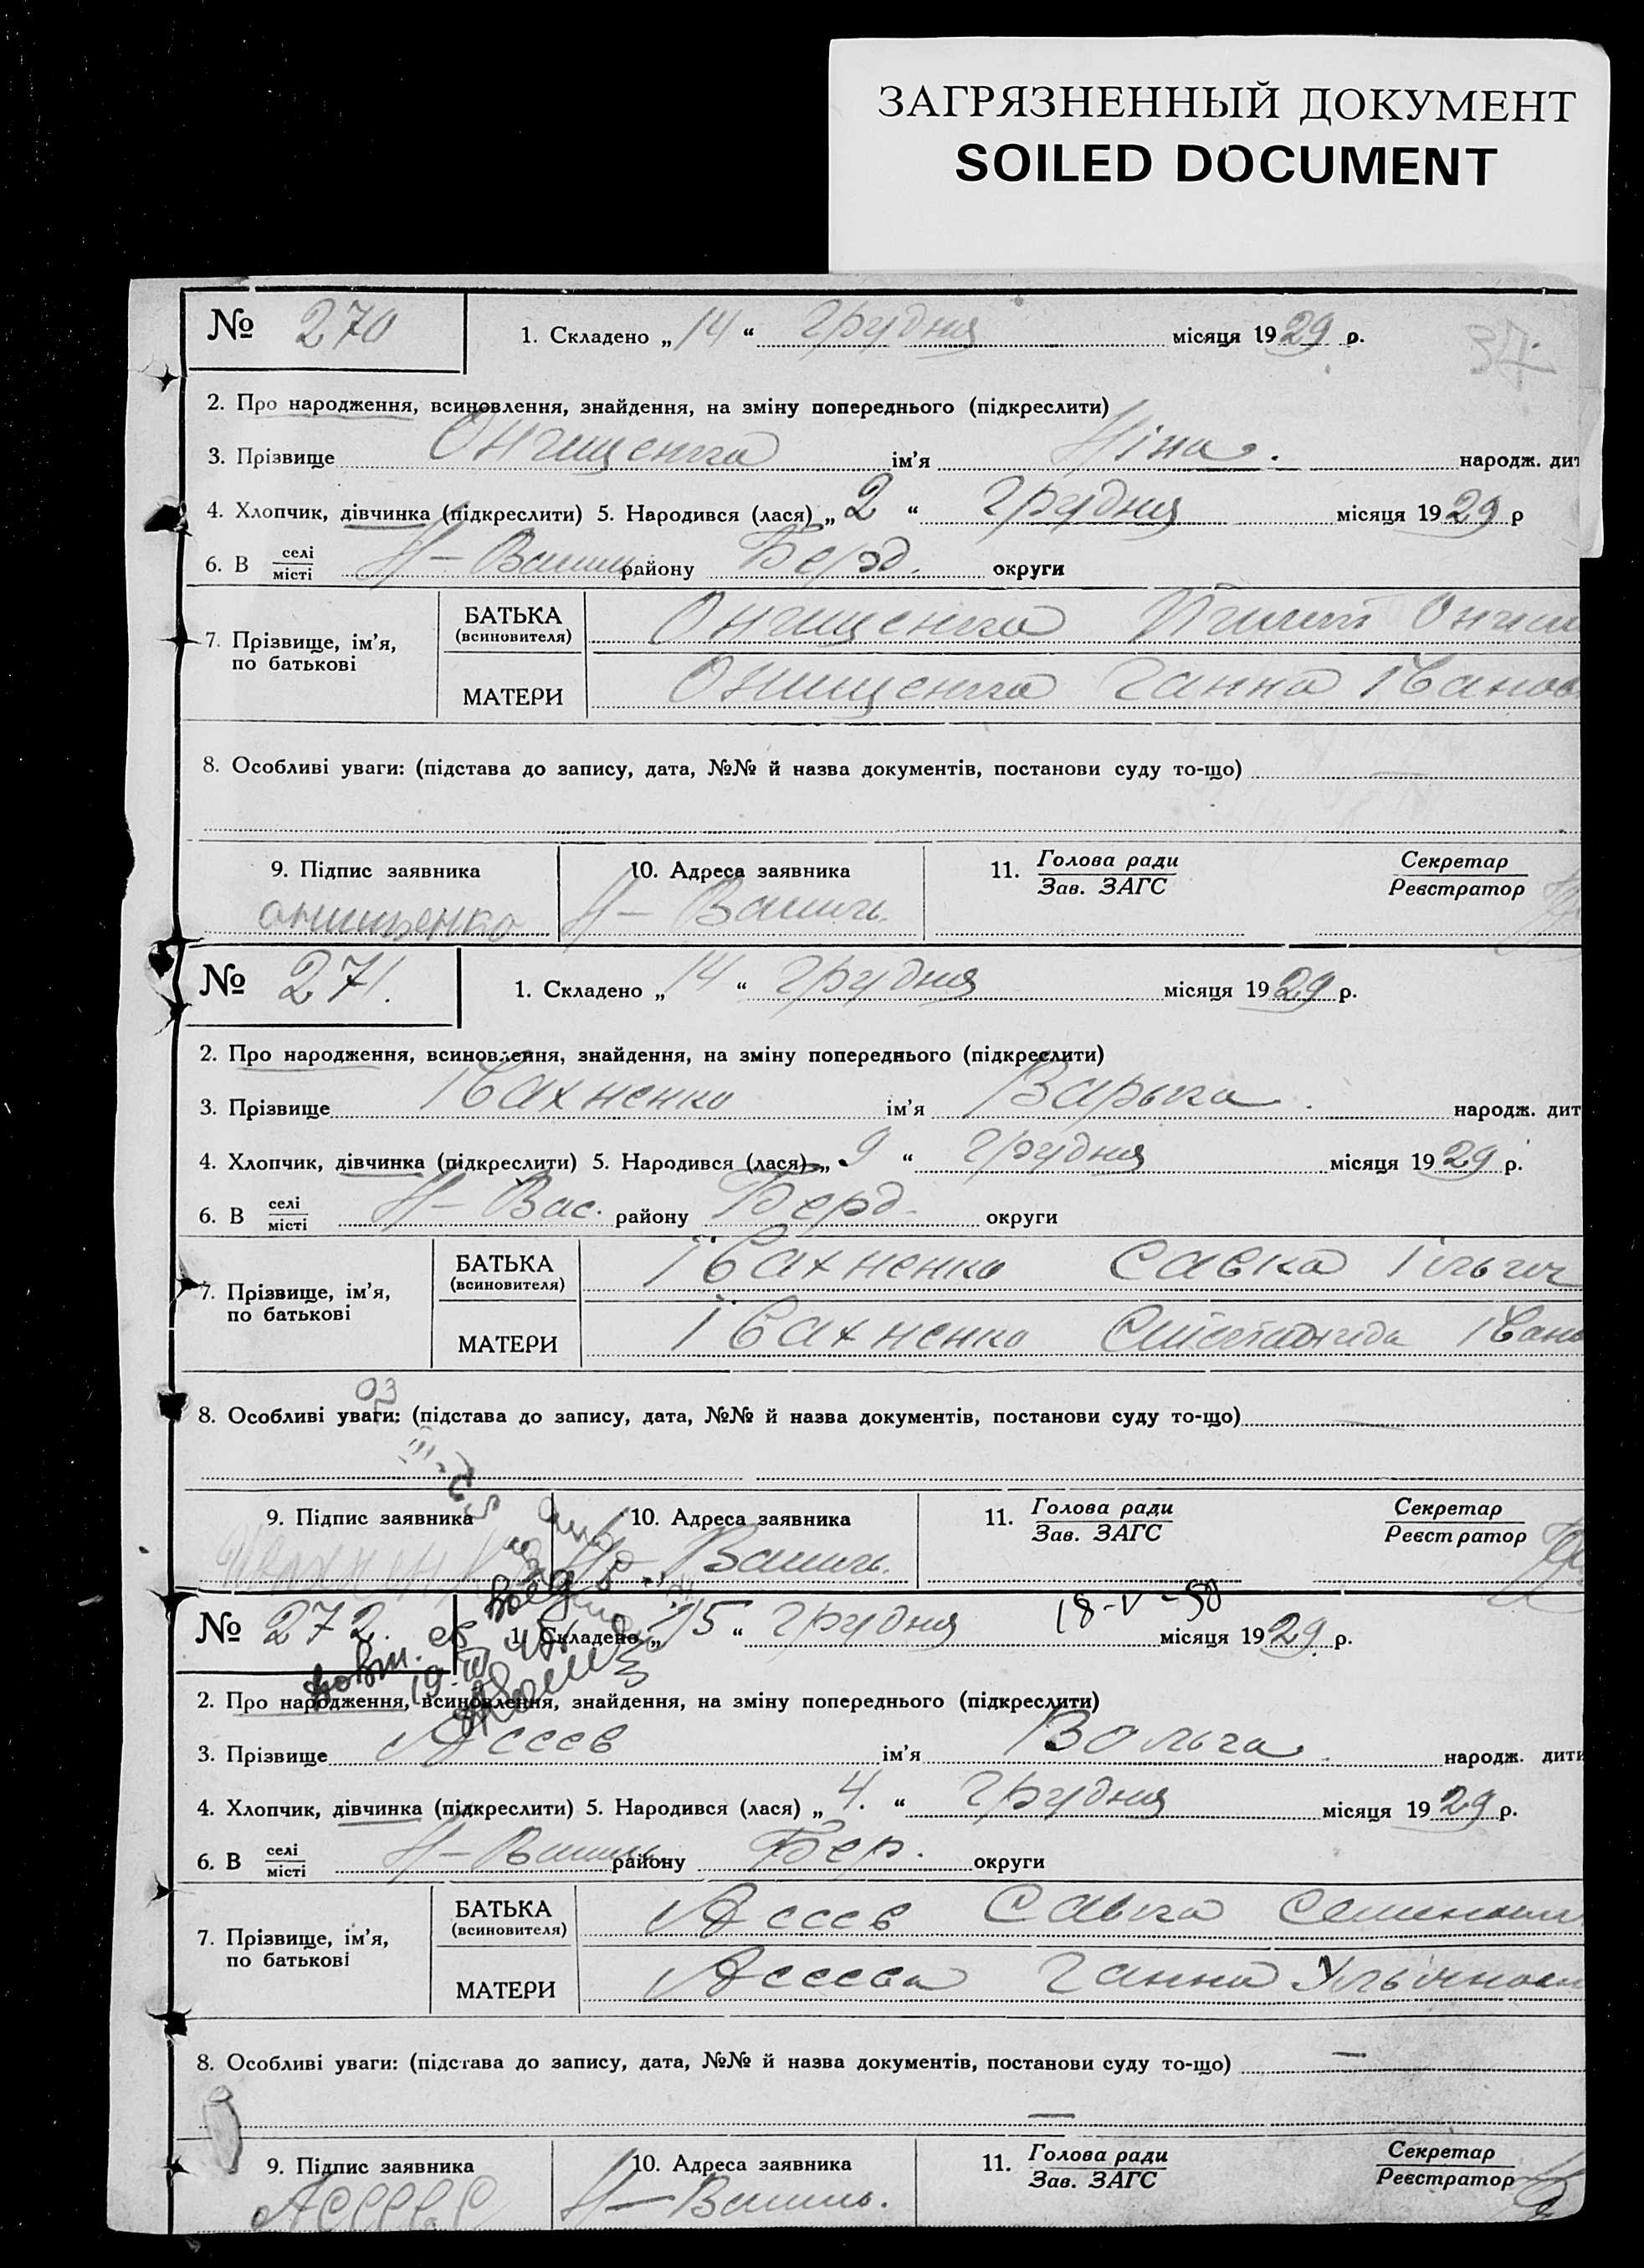 ЗАГРЯЗНЕННЫЙ ДОКУМЕНТ
SOILED DOCUMENT
37
№ 270 1. Складено „14“ грудня місяця 1929 р.
2. Про народження, всиновлення, знайдення, на зміну попереднього (підкреслити)
3. Прізвище Онищенко ім'я Ніна. народж. дит
4. Хлопчик, дівчинка (підкреслити) 5. Народився (лася) „2“ грудня місяця 1929 р
6. В селі місті Н-Васил району Берд. округи
7. Прізвище, ім'я, по батькові
БАТЬКА (всиновителя) Онищенко
МАТЕРИ Онищенко Ганна Іванов
8. Особливі уваги: (підстава до запису, дата, №№ й назва документів, постанови суду то-що) —
9. Підпис заявника 10. Адреса заявника 11. Голова ради Зав. ЗАГС Секретар Реєстратор
онищенко Н-
№ 271. 1. Складено „14“ грудня місяця 1929 р.
2. Про народження, всиновлення, знайдення, на зміну попереднього (підкреслити)
3. Прізвище Івахненко ім'я Варька. народж. дит
4. Хлопчик, дівчинка (підкреслити) 5. Народився (лася) „9“ грудня місяця 1929 р.
6. В селі місті Н-Вас. району Берд. округи
7. Прізвище, ім'я, по батькові
БАТЬКА (всиновителя) Івахненко Савка Ільич
МАТЕРИ Івахненко Іван
8. Особливі уваги: (підстава до запису, дата, №№ й назва документів, постанови суду то-що) —
9. Підпис заявника 10. Адреса заявника 11. Голова ради Зав. ЗАГС Секретар Реєстратор
№ 272. 1. Складено „15“ грудня 18-V-50 місяця 1929 р.
2. Про народження, всиновлення, знайдення, на зміну попереднього (підкреслити)
3. Прізвище Асеев ім'я Вольга. народж. дити
4. Хлопчик, дівчинка (підкреслити) 5. Народився (лася) „4.“ грудня місяця 1929 р.
6. В селі місті Н-Васил району Бер. округи
7. Прізвище, ім'я, по батькові
БАТЬКА (всиновителя) Асеев Савка
МАТЕРИ Асеева Ганна
8. Особливі уваги: (підстава до запису, дата, №№ й назва документів, постанови суду то-що) —
—
9. Підпис заявника 10. Адреса заявника 11. Голова ради Зав. ЗАГС Секретар Реєстратор
Асеев